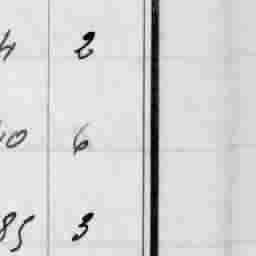 4 2
40 6
85 3